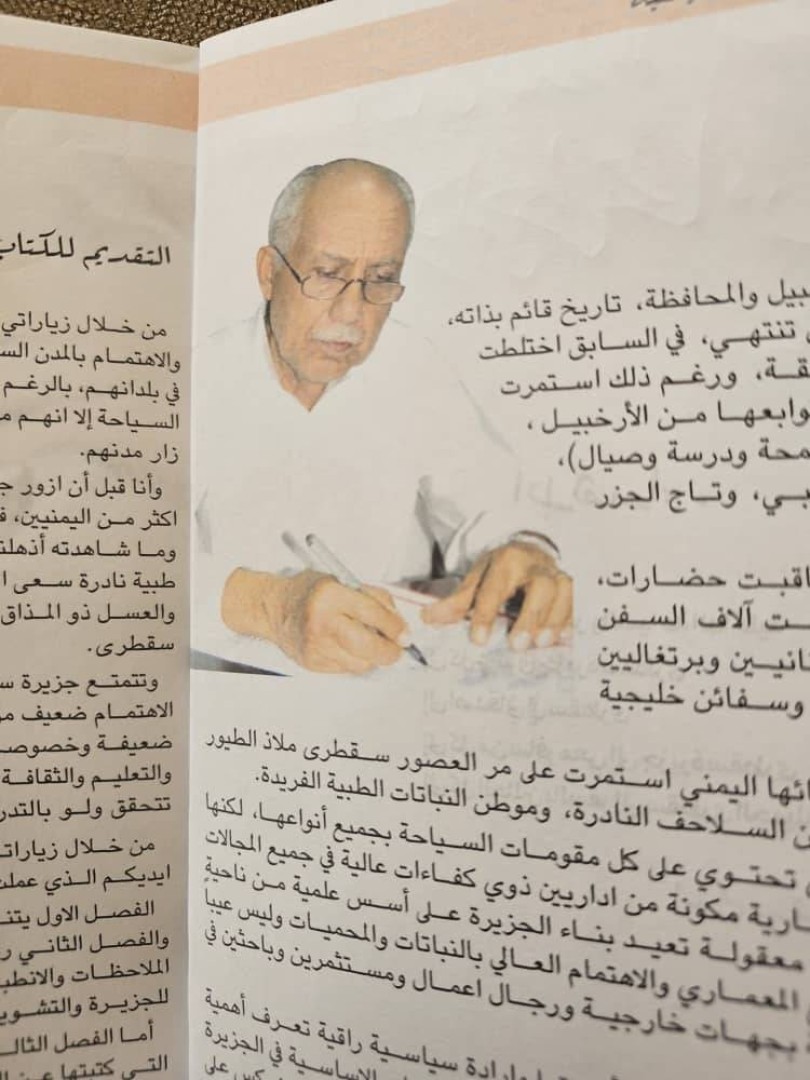 بيل والمحافظة، تاريخ قائم بذاته،
تنتهي، في السابق اختلطت
قة، ورغم ذلك استمرت
وابعها من الأرخبيل،
محة ودرسة وصيال)،
بي، وتاج الجزر
اقبت حضارات،
ت آلاف السفن
انيين وبرتغاليين
وسفائن خليجية
ائها اليمني استمرت على مر العصور سقطرى ملاذ الطيور
ن السلاحف النادرة، وموطن النباتات الطبية الفريدة.
تحتوي على كل مقومات السياحة بجميع أنواعها، لكنها
ارية مكونة من اداريين ذوي كفاءات عالية في جميع المجالات
معقولة تعيد بناء الجزيرة على أسس علمية من ناحية
المعماري والاهتمام العالي بالنباتات والمحميات وليس عيباً
بجهات خارجية ورجال اعمال ومستثمرين وباحثين في
وارادة سياسية راقية تعرف أهمية
الاساسية في الجزيرة
على
التقديم للكتاب
من خلال زياراتي
والاهتمام بالمدن الس
في بلدانهم، بالرغم
السياحة إلا انهم م
زار مدنهم.
وأنا قبل أن ازور ج
اكثر من اليمنيين، ف
وما شاهدته أذهلن
طبية نادرة سعى ا
والعسل ذو المذاق
سقطرى.
وتتمتع جزيرة س
الاهتمام ضعيف م
ضعيفة وخصوصـ
والتعليم والثقافة
تتحقق ولو بالتدر
من خلال زياراتـ
ايديكم الذي عملت
الفصل الاول يتنـ
والفصل الثاني ر
الملاحظات والانطبـ
للجزيرة والتشويـ
أما الفصل الثالـ
التي كتبتها عن